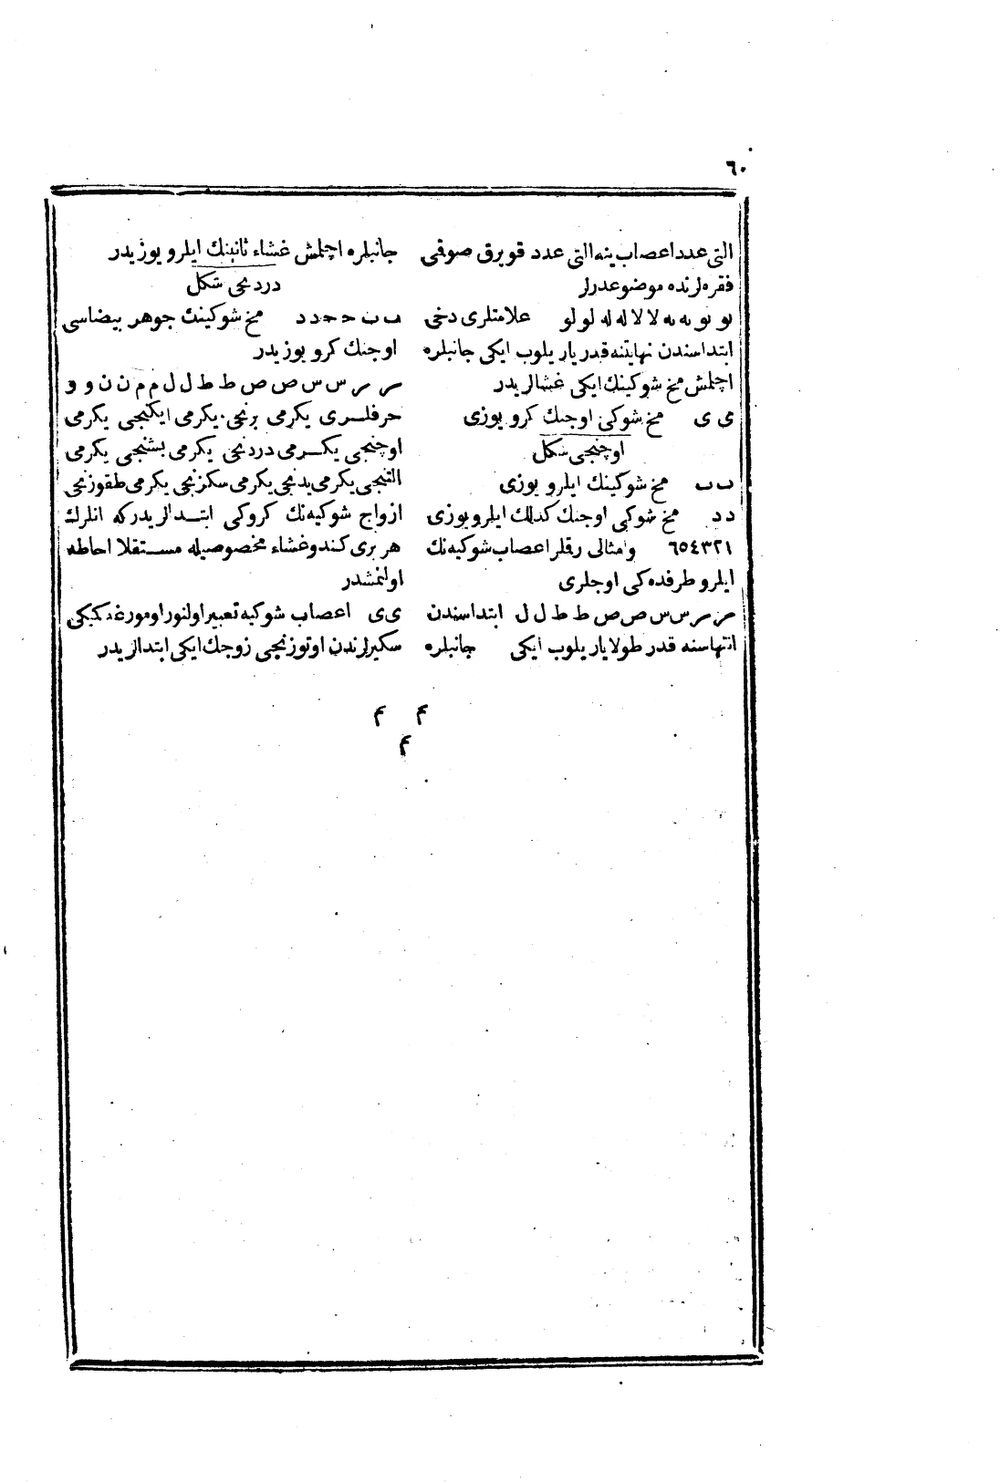 ٦٠
التی عدد اعصاب ینه التی عدد قویرق صوقی
فقره لرنده موضوعدرلر
لا لا له له لو لو علامتلری دخی
ابتداسندن نهایتنه قدر یاریلوب ایکی جانبلره
اچلمش مخ شوکینك ایکی غشالریدر
ی ی مخ شوکی اوجنك کرو یوزی
اوچنجی شکل
ب ب مخ شوکینك ایلرو یوزی
د د مخ شوکی اوجنك کذلك ایلرو یوزی
٦٥٤٣٢١ وامثالی رقلر اعصاب شوکیه نك
ایلرو طرفده کی اوجلری
ر ر س س ص ص ط ط ل ل ابتداسندن
انتهاسنه قدر طولا یاریلوب ایکی جانبلره
جانبلره اچلمش غشاء ثانینك ایلرو یوزیدر
دردنجی شکل
ب ب ح ح د د مخ شوکینك جوهر بیضاسی
اوجنك کرو یوزیدر
ر ر س س ص ص ط ط ل ل م م ن ن و و
حرفلری یکرمی برنجی یکرمی ایکنجی یکرمی
اوچنجی یکرمی دردنجی یکرمی بشنجی یکرمی
التنجی یکرمی یدنجی یکرمی سکزنجی یکرمی طقوزنجی
ازواج شوکیه نك کروکی ابتدالریدر که انلرك
هر بری کندو غشاء مخصوصیله مستقلا احاطه
اولنمشدر
ی ی اعصاب شوکیه تعبیر اولنور اومورغه دکیکی
سکیرلرندن اوتوزنجی زوجك ایکی ابتدالریدر
م م
م